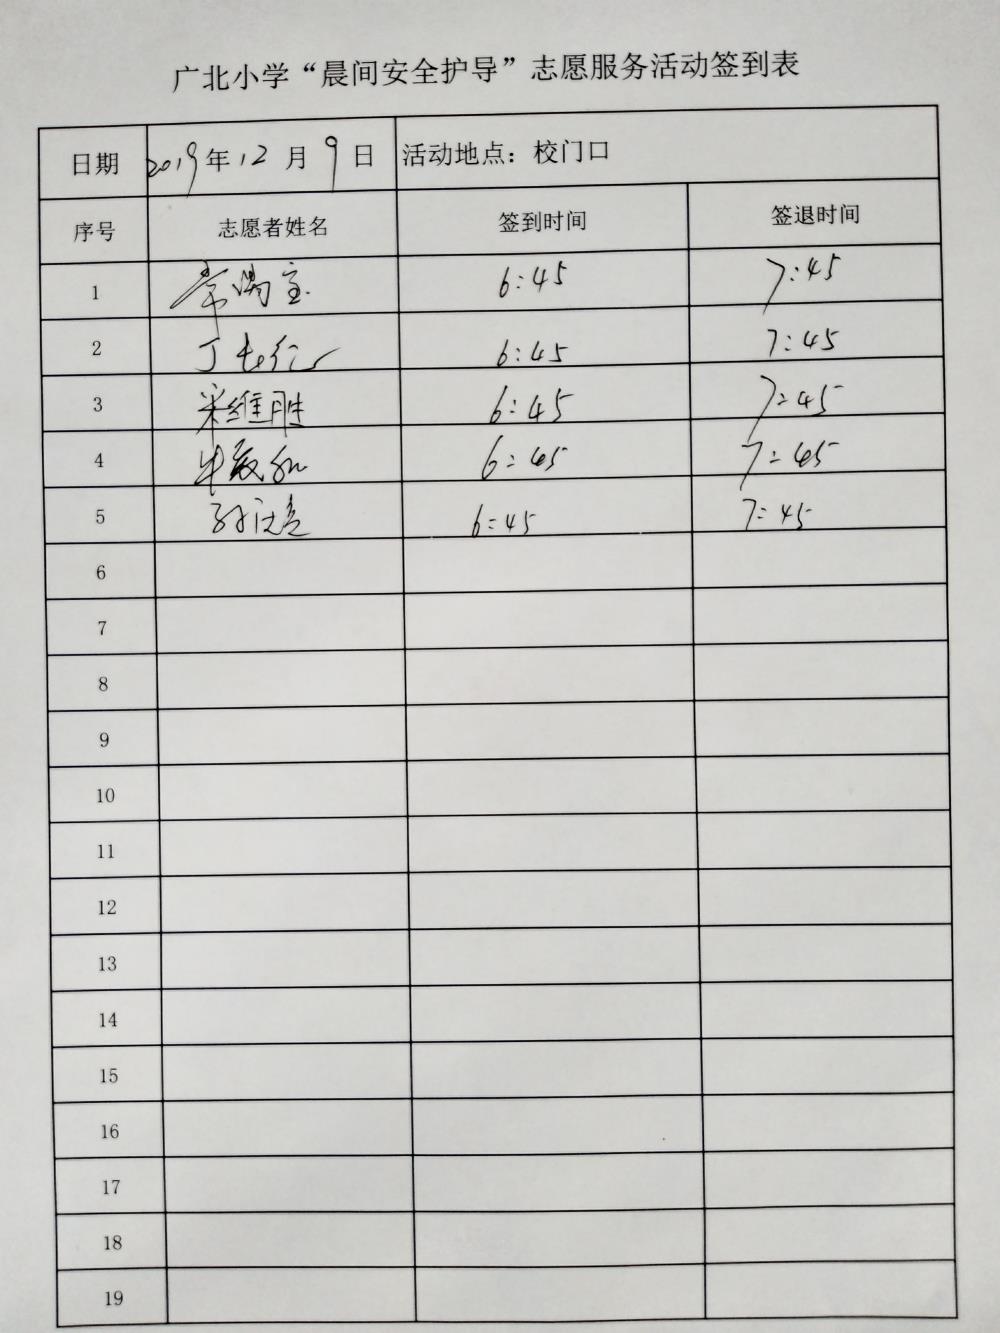 广北小学“晨间安全护导”志愿服务活动签到表
日期 2019年12月9日 活动地点：校门口
序号 志愿者姓名 签到时间 签退时间
1 6:45 7:45
2 丁 6:45 7:45
3 宋维胜 6:45 7:45
4 牛 6:45 7:45
5 孙 6:45 7:45
6
7
8
9
10
11
12
13
14
15
16
17
18
19